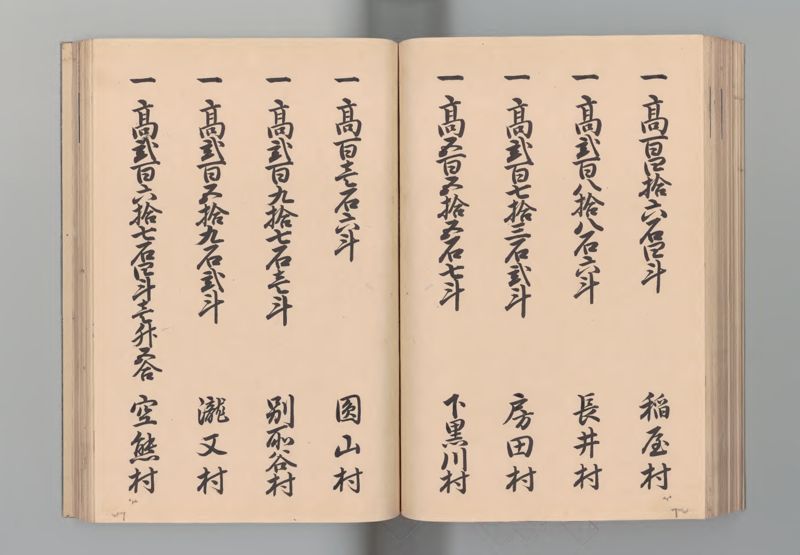 一 高百四拾六石四斗 稲屋村
一 高弐百八拾八石六斗 長井村
一 高弐百七拾三石弐斗 房田村
一 高五百五拾五石七斗 下黒川村
一 高百壱石六斗 圓山村
一 高弐百九拾七石壱斗 別所谷村
一 高弐百五拾九石弐斗 瀧又村
一 高弐百六拾七石四斗壱升五合 空熊村